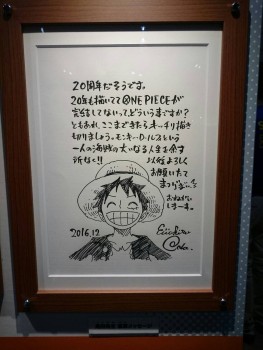 20周年だそうです。
20年も描いててONE PIECEが
完結してないって、どういう事ですか?
ともあれ、ここまできたらキッチリ描き
切りましょう。モンキー・D・ルフィという
一人の海賊の大いなる人生を余す
所なく!! 以後よろしく
お願いいたし
まつげぼーん
おねがい
しまーす。
2016.12
Eiichiro
Oda.